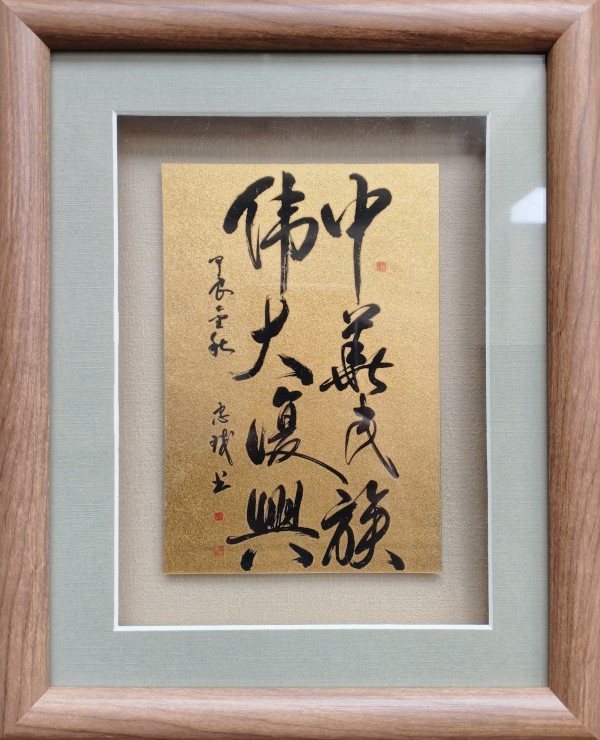 中華民族
伟大復興
甲辰金秋 忠
书